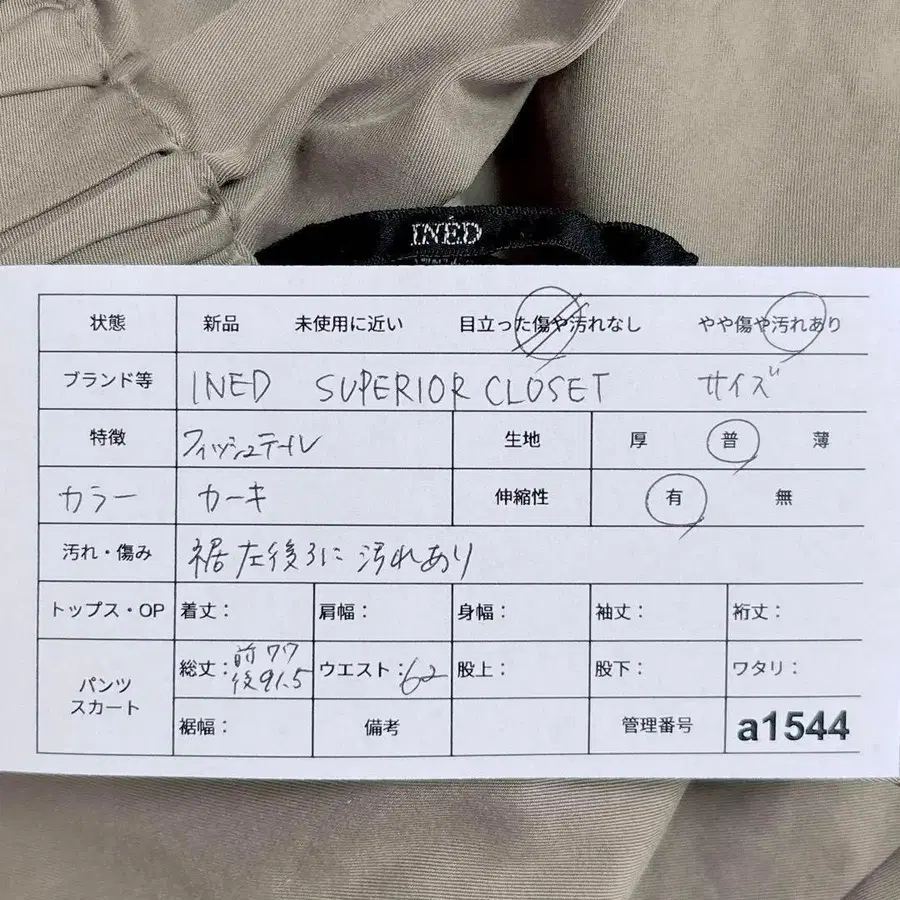 INÉD
状態 新品 未使用に近い 目立った傷や汚れなし やや傷や汚れあり
ブランド等 INED SUPERIOR CLOSET サイズ
特徴 フィッシュテール 生地 厚 普 薄
カラー カーキ 伸縮性 有 無
汚れ・傷み 裾左後ろに汚れあり
トップス・OP 着丈: 肩幅: 身幅: 袖丈: 裄丈:
パンツ スカート 総丈: 前77 後91.5 ウエスト:62 股上: 股下: ワタリ:
裾幅: 備考 管理番号 a1544